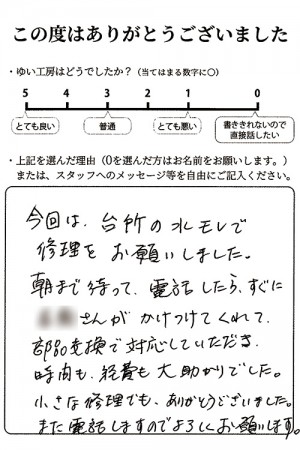 この度はありがとうございました
・ゆい工房はどうでしたか？（当てはまる数字に〇）
5 4 3 2 1 0
とても良い 普通 とても悪い 書ききれないので
直接話したい
・上記を選んだ理由（0を選んだ方はお名前をお願いします。）
または、スタッフへのメッセージ等を自由にご記入ください。
今回は、台所の水モレで
修理をお願いしました。
朝まで待って、電話したら、すぐに
さんがかけつけてくれて、
部品交換で対応していただき、
時間も、経費も大助かりでした。
小さな修理でも、ありがとうございました。
また電話しますのでよろしくお願いします。